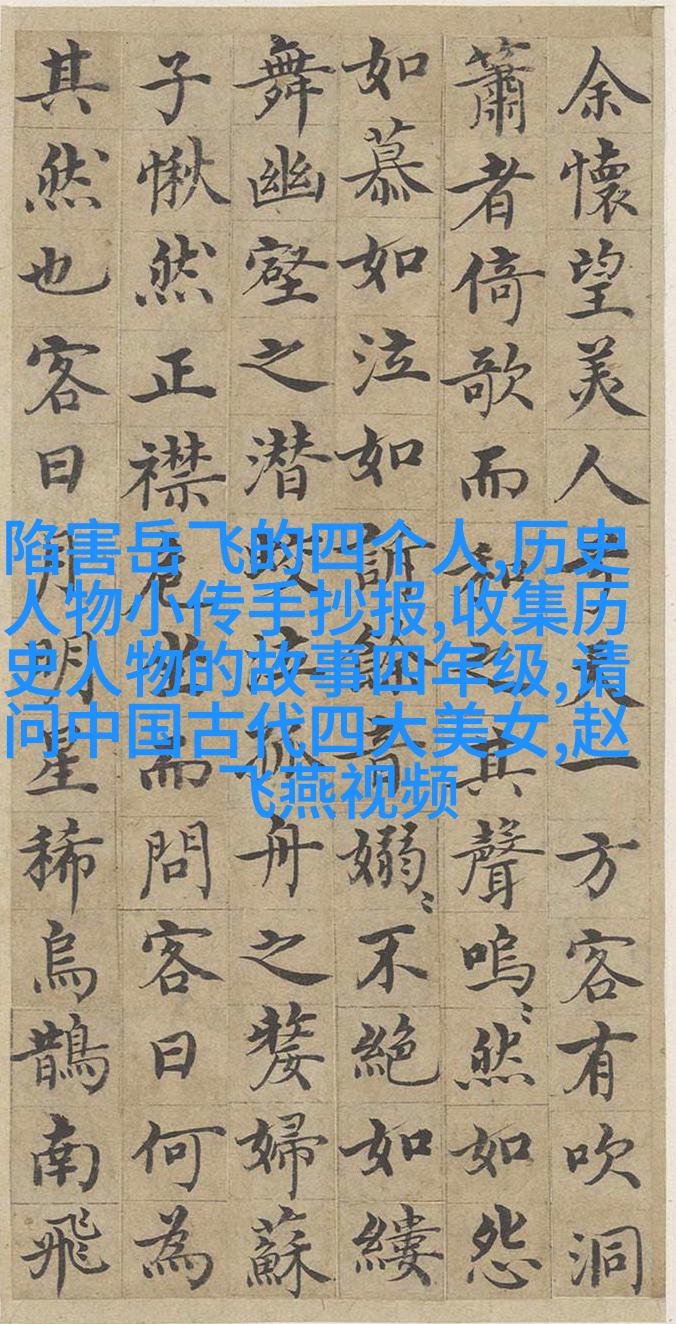 余懷望美人兮天一方客有吹洞
簫者倚歌而和之其聲嗚〻然如怨
如慕如泣如訴餘音嫋〻不絕如縷
舞幽壑之潛蛟泣孤舟之嫠婦蘇
子愀然正襟危坐而問客曰何為
其然也客曰月明星稀烏鵲南飛
陷害岳飞的四个人,历史
人物小传手抄报,收集历
史人物的故事四年级,请
问中国古代四大美女,赵
飞燕视频